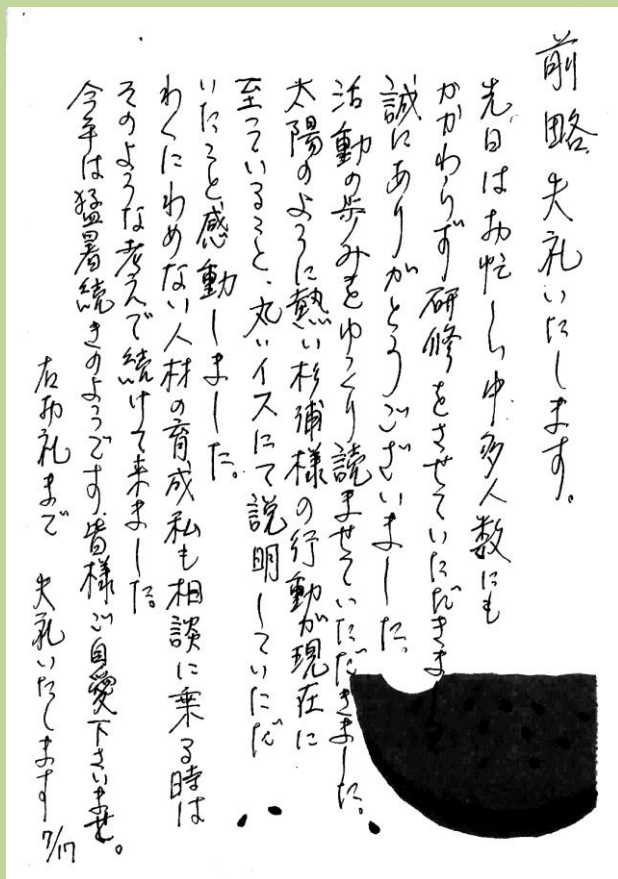 前略失礼いたします。
先日はお忙しい中多人数にも
かかわらず研修をさせていただきまして
誠にありがとうございました。
活動の歩みをゆっくり読ませていただきました。
太陽のように熱い杉浦様の行動が現在に
至っていること、丸いイスにて説明していただ
いたこと感動しました。
わくにわめない人材の育成私も相談に乗る時は
そのような考えで続けて来ました。
今年は猛暑続きのようです。皆様ご自愛下さいませ。
右お礼まで 失礼いたします 7/17